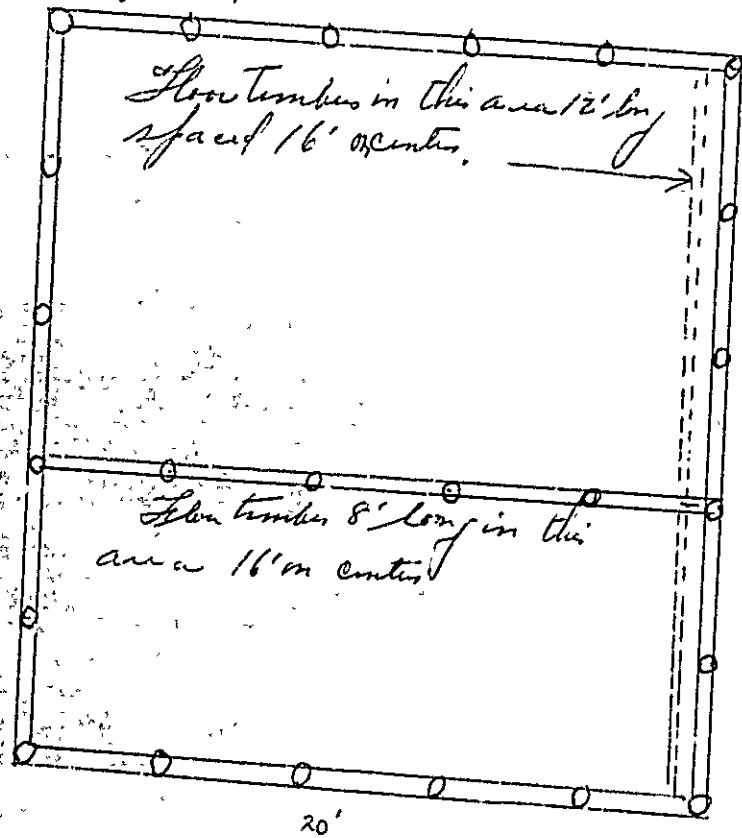 Floor timbers in this area 12' long
spaced 16' on centers.
Floor timbers 8' long in this
area 16' on centers
20'